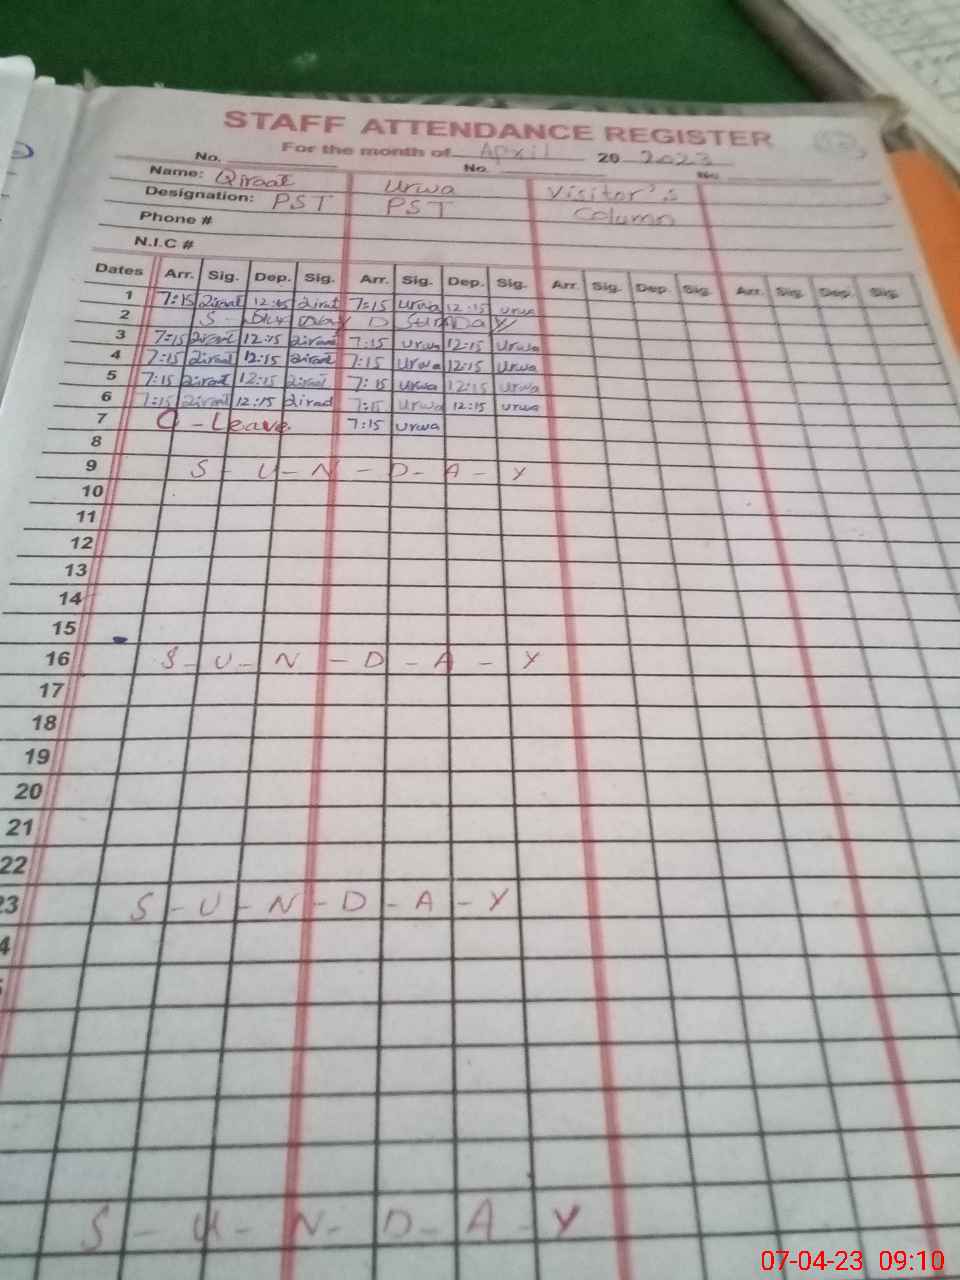 STAFF ATTENDANCE REGISTER
For the month of April 20 2023
No. No. No.
Name: Qiraat Urwa Visitor's
Designation: PST PST Column
Phone #
N.I.C #
Dates Arr. Sig. Dep. Sig. Arr. Sig. Dep. Sig. Arr. Sig. Dep. Sig. Arr. Sig. Dep. Sig.
1 7:15 Qiraat 12:15 Qiraat 7:15 Urwa 12:15 Urwa
2 S - D SUNDAY
3 7:15 Qiraat 12:15 Qiraat 7:15 Urwa 12:15 Urwa
4 7:15 Qiraat 12:15 Qiraat 7:15 Urwa 12:15 Urwa
5 7:15 Qiraat 12:15 Qiraat 7:15 Urwa 12:15 Urwa
6 7:15 Qiraat 12:15 Qiraat 7:15 Urwa 12:15 Urwa
7 C - Leave 7:15 Urwa
8
9 S - U - N - D - A - Y
10
11
12
13
14
15
16 S - U - N - D - A - Y
17
18
19
20
21
22
23 S - U - N - D - A - Y
4
S - U - N - D - A - Y
07-04-23 09:10